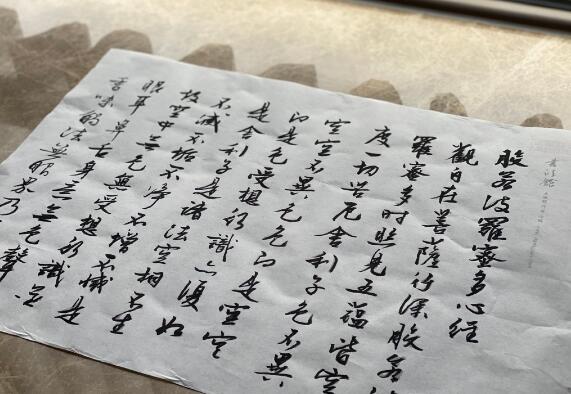 般若波羅蜜多心经
觀自在菩薩行深般若
羅蜜多时照見五蕴皆空
度一切苦厄舍利子色不異
空空不異色色即是空空
即是色受想行識亦復如
是舍利子是諸法空相不生
不滅不垢不净不增不減是
故空中无色無受想行識无
眼耳鼻舌身意无色聲
香味触法無眼界乃